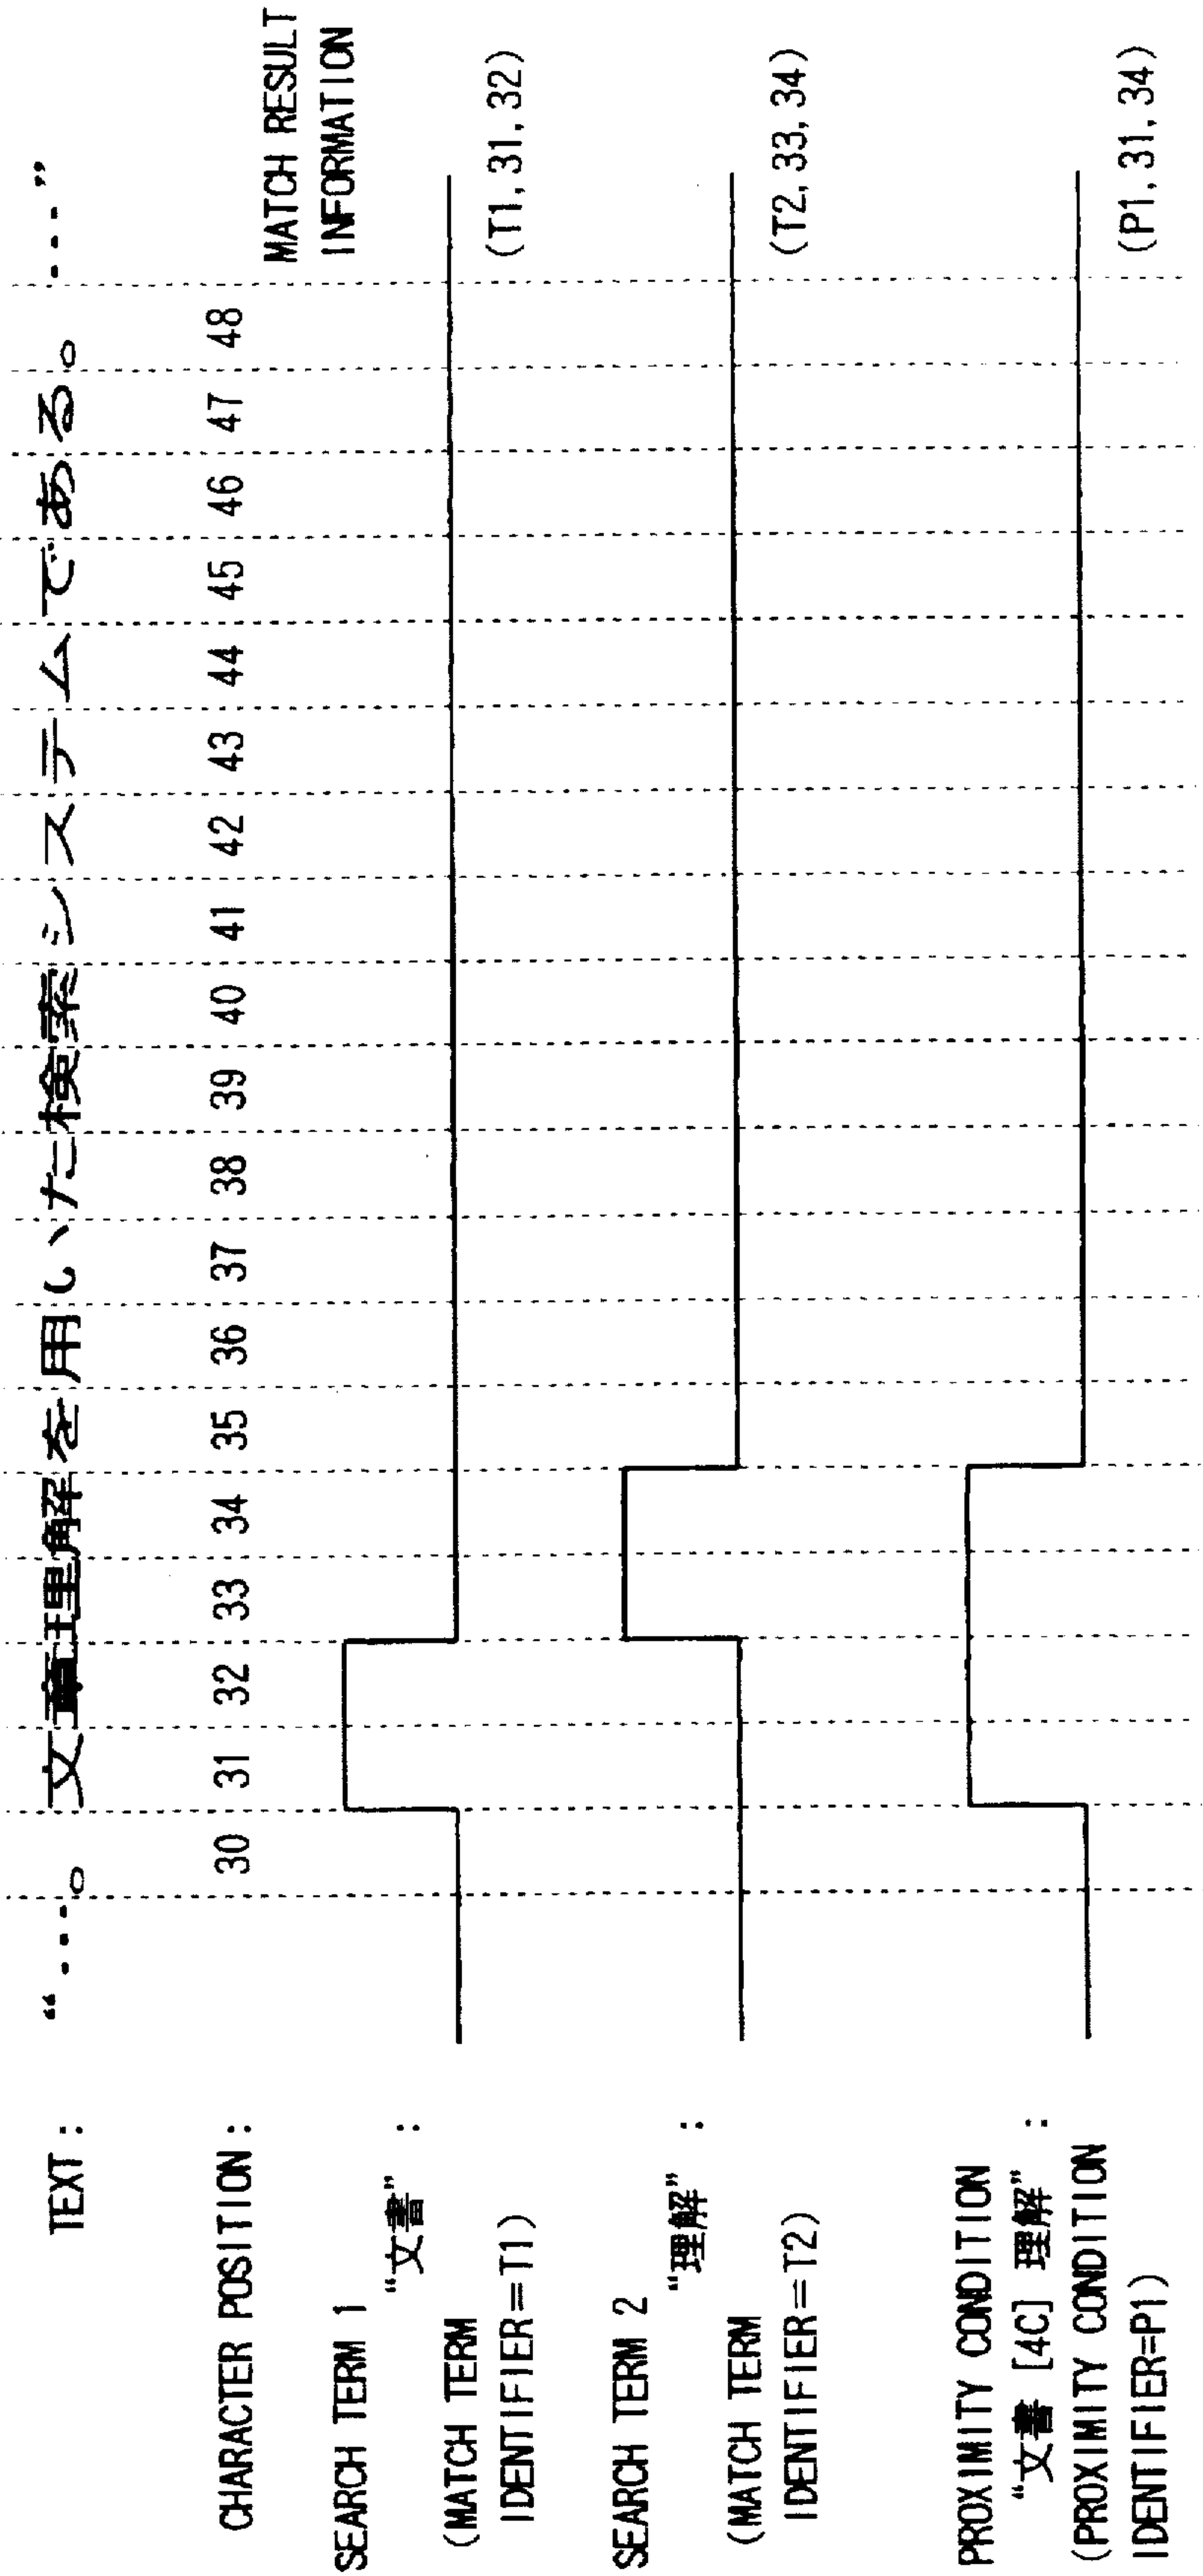 TEXT : “・・・。文章理解を用いた検索システムである。・・・”
CHARACTER POSITION : 30 31 32 33 34 35 36 37 38 39 40 41 42 43 44 45 46 47 48
MATCH RESULT
INFORMATION
SEARCH TERM 1
“文書” :
(MATCH TERM
IDENTIFIER=T1)
(T1,31,32)
SEARCH TERM 2
“理解” :
(MATCH TERM
IDENTIFIER=T2)
(T2,33,34)
PROXIMITY CONDITION
“文書 [4C] 理解” :
(PROXIMITY CONDITION
IDENTIFIER=P1)
(P1,31,34)